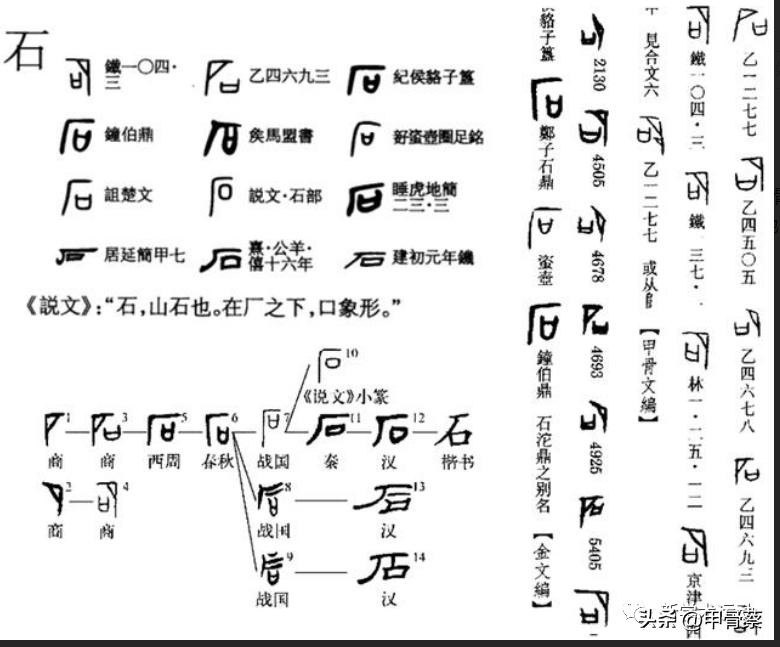 石
鐵一〇四·三
乙四六九三
紀侯貉子簋
鐘伯鼎
矦馬盟書
詛楚文
説文·石部
睡虎地簡二三·三
居延簡甲七
熹·公羊·僖十六年
建初元年鐖
《説文》：“石，山石也。在厂之下，口象形。”
10
《说文》小篆
1
3
5
6
7
11
12
石
商
商
西周
春秋
战国
秦
汉
楷书
2
4
8
13
商
商
战国
汉
9
14
战国
汉
乙一二七七
乙四五〇五
乙四六七八
乙四六九三
鐵一〇四·三
鐵一三七·一
林一·二五·一二
京津
見合文六
乙一二七七 或从𨸏
【甲骨文編】
2130
4505
4678
4693
4925
5405
貉子簋
鄭子石鼎
鐘伯鼎 石沱鼎之別名
【金文編】
头条@甲骨蔡